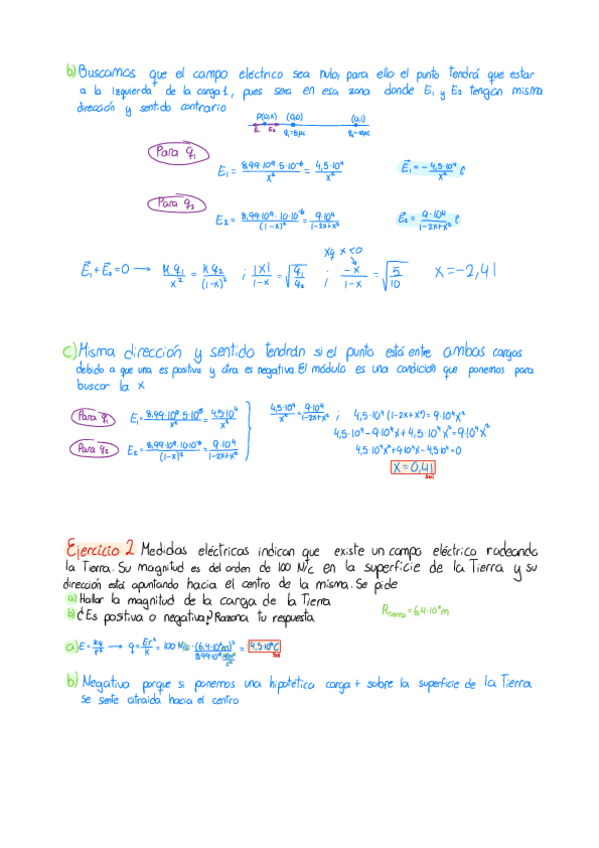 b) Buscamos que el campo eléctrico sea nulo, para ello el punto tendrá que estar
a la izquierda de la carga 1, pues será en esa zona donde E₁ y E₂ tengan misma
dirección y sentido contrario
P(0,x) (0,0) (0,1)
E₁ E₂ q₁=5μC q₂=-10μC
Para q₁
E₁ = 8,99·10⁹·5·10⁻⁶/x² = 4,5·10⁴/x² E₁ = - 4,5·10⁴/x² î
Para q₂
E₂ = 8,99·10⁹·10·10⁻⁶/(1-x)² = 9·10⁴/1-2x+x² E₂ = 9·10⁴/1-2x+x² î
xq x<0
E₁+E₂=0 → K q₁/x² = K q₂/(1-x)² ; |x|/1-x = √q₁/q₂ ; -x/1-x = √5/10 x=-2,41
c) Misma dirección y sentido tendrán si el punto está entre ambas cargas
debido a que una es positiva y otra es negativa. El módulo es una condición que ponemos para
buscar la x
Para q₁ E₁= 8,99·10⁹·5·10⁻⁶/x² = 4,5·10⁴/x² 4,5·10⁴/x² = 9·10⁴/1-2x+x² ; 4,5·10⁴(1-2x+x²)=9·10⁴x²
4,5·10⁴-9·10⁴x+4,5·10⁴x²=9·10⁴x²
Para q₂ E₂= 8,99·10⁹·10·10⁻⁶/(1-x)² = 9·10⁴/1-2x+x² 4,5·10⁴x²+9·10⁴x-4,5·10⁴=0
x=0,41
Sol
Ejercicio 2 Medidas eléctricas indican que existe un campo eléctrico rodeando
la Tierra. Su magnitud es del orden de 100 N/C en la superficie de la Tierra y su
dirección está apuntando hacia el centro de la misma. Se pide
a) Hallar la magnitud de la carga de la Tierra
b) ¿Es positiva o negativa? Razona tu respuesta R Tierra=6,4·10⁶m
a) E = kq/r² → q = Er²/K = 100 N/C · (6,4·10⁶m)²/8,99·10⁹ = 4,5·10⁵C
Sol
b) Negativa porque si ponemos una hipotética carga + sobre la superficie de la Tierra
se siente atraída hacia el centro